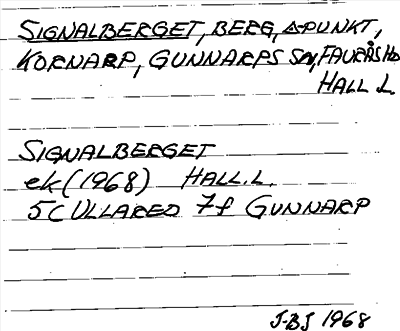 SIGNALBERGET, BERG, △-PUNKT,
KORNARP, GUNNARPS SN, FAURÅS HD
HALL L.
SIGNALBERGET
ek (1968) HALL. L.
5C ULLARED 7f GUNNARP
J-BJ 1968